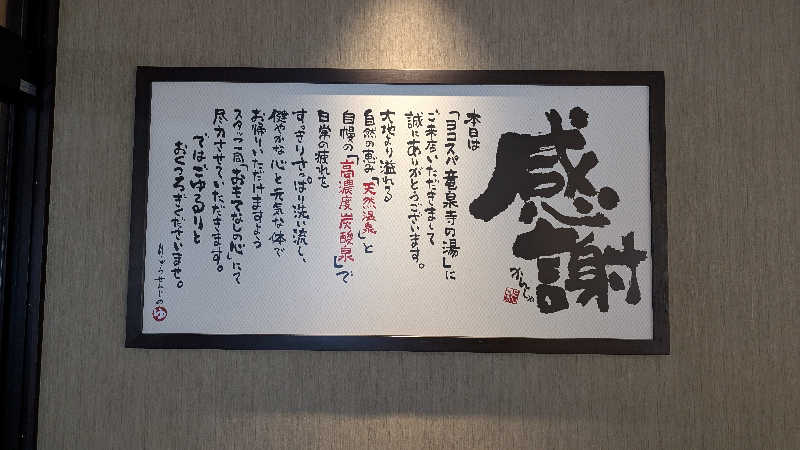 感謝
かんしゃ
本日は
「ヨコスパ 竜泉寺の湯」に
ご来店いただきまして
誠にありがとうございます。
大地より溢れる
自然の恵み「天然温泉」と
自慢の「高濃度炭酸泉」で
日常の疲れを
すっきりさっぱり洗い流し、
健やかな心と元気な体で
お帰りいただけますよう
スタッフ一同「おもてなしの心」にて
尽力させていただきます。
ではごゆるりと
おくつろぎくださいませ。
りゅうせんじの ゆ